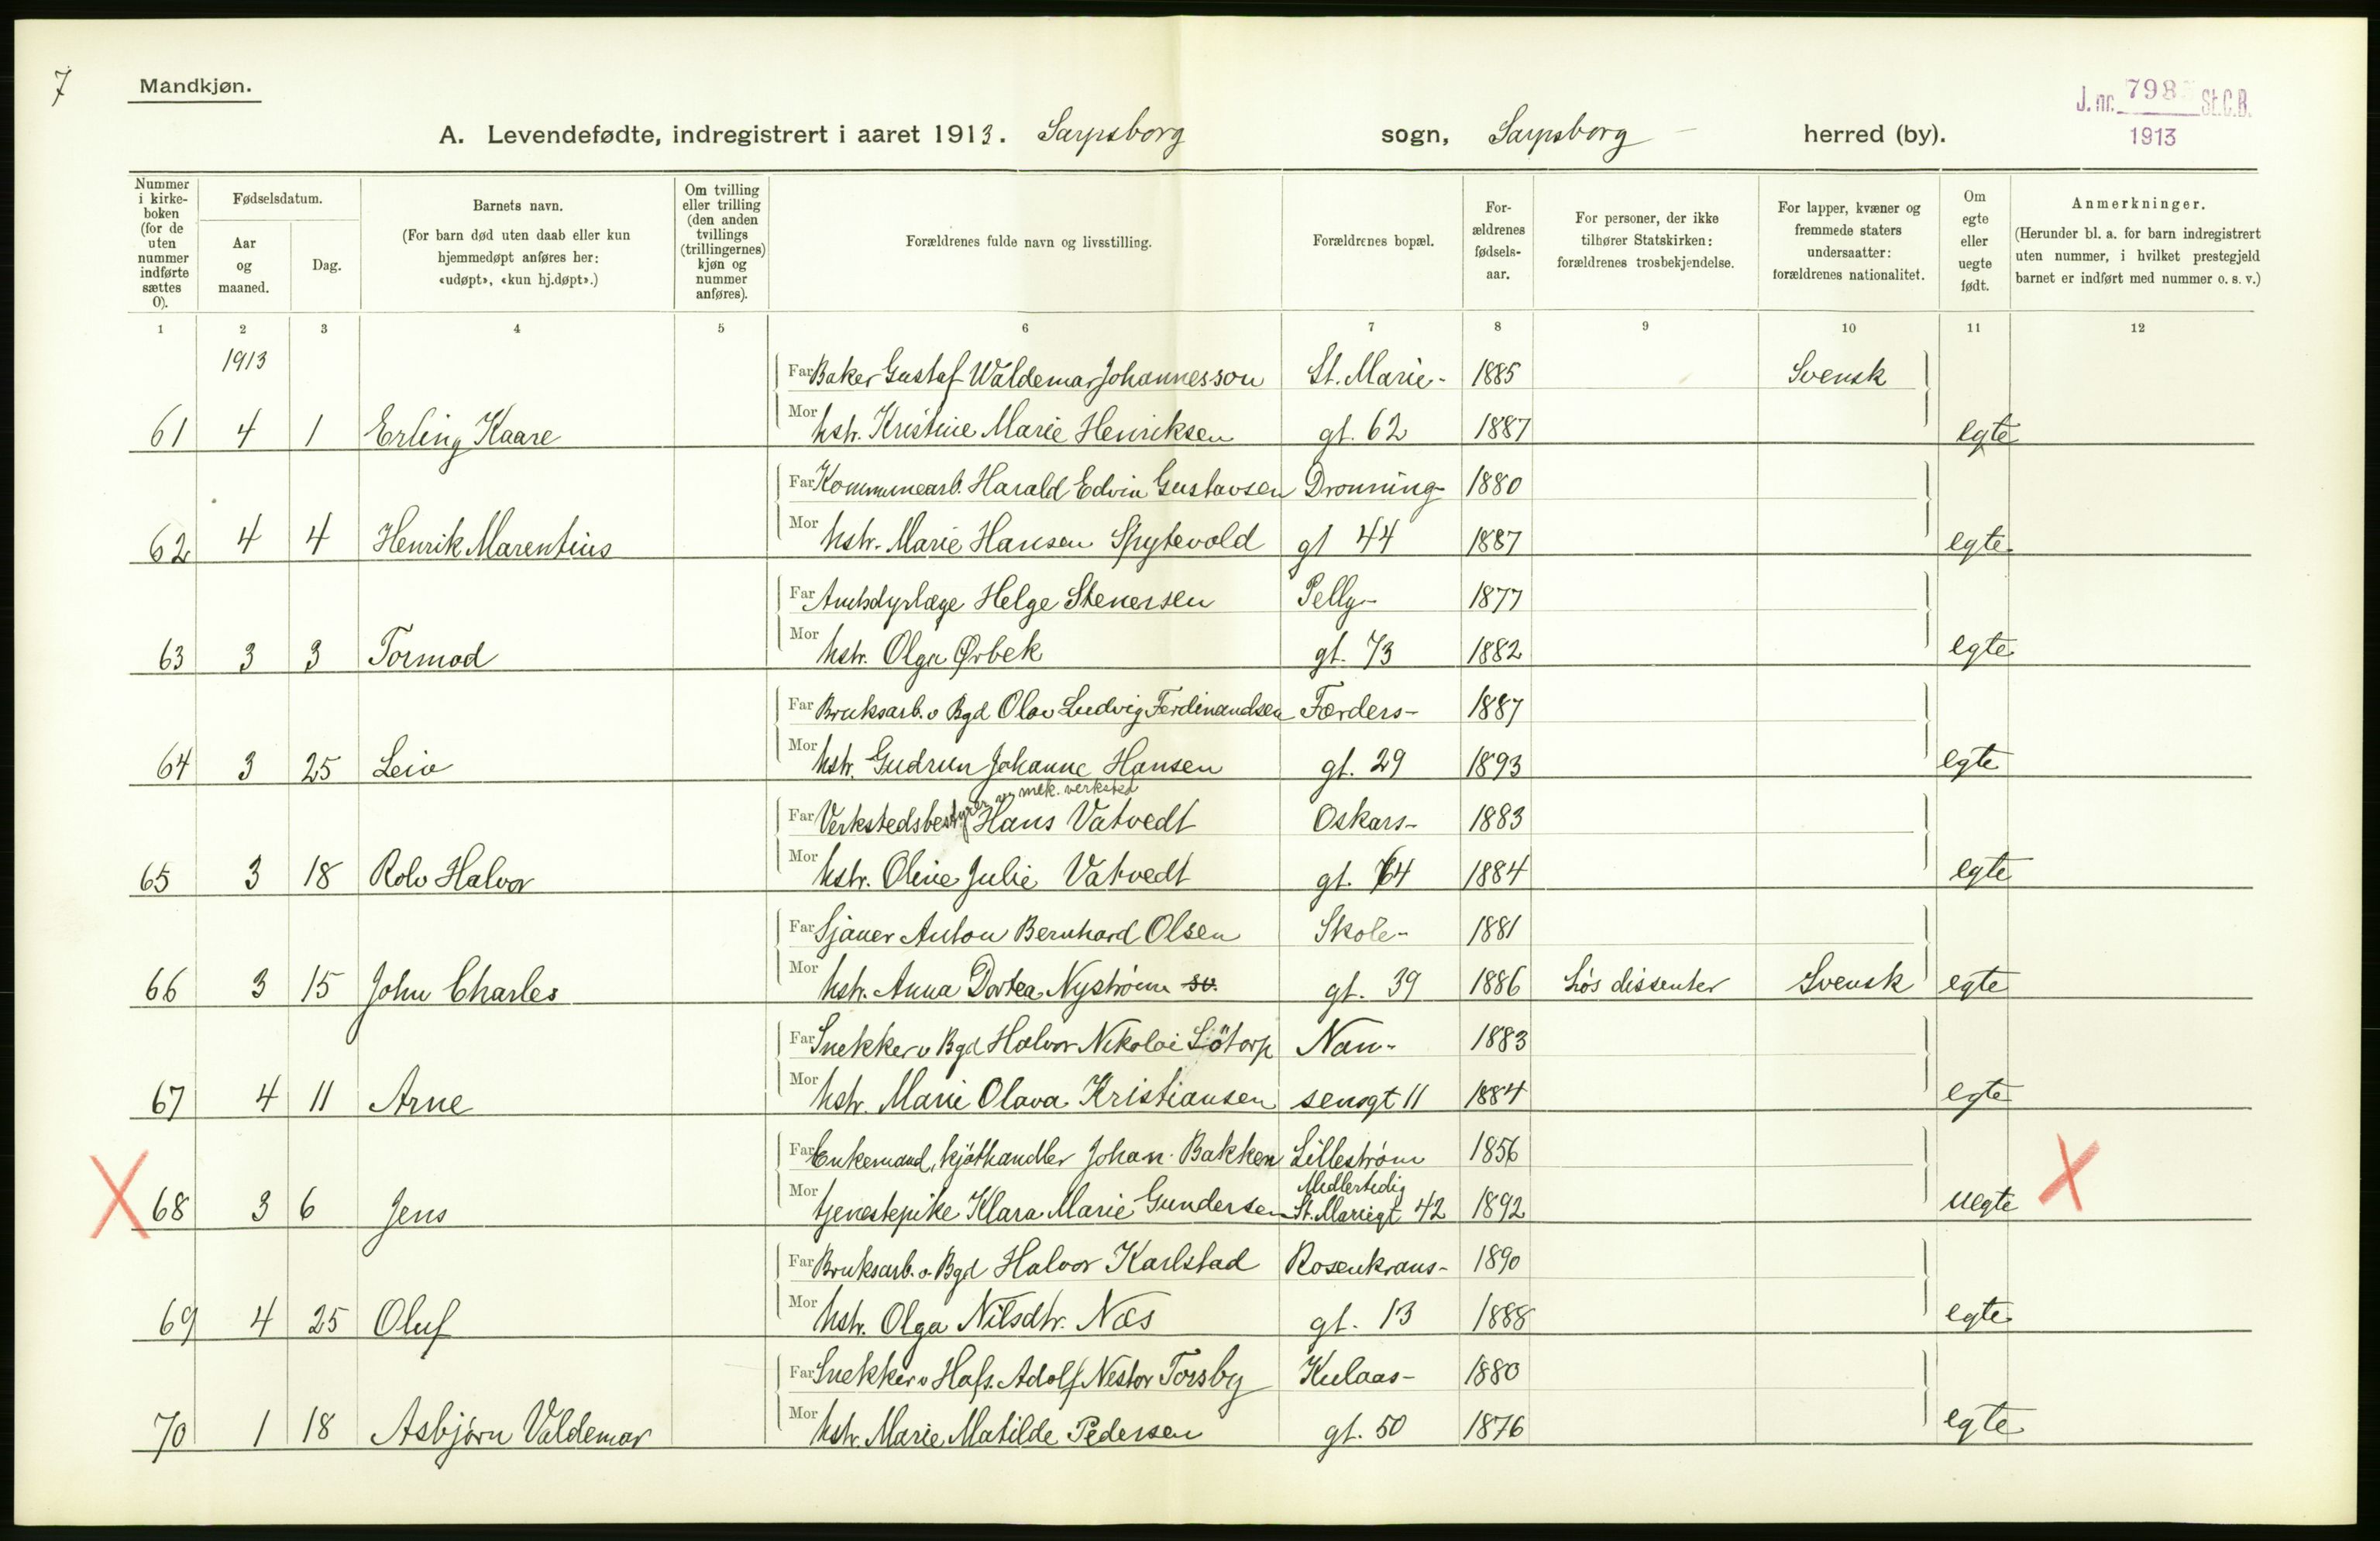 7
Mandkjøn.
J. nr. 798 St.C.B.
1913
A. Levendefødte, indregistrert i aaret 1913. Sarpsborg sogn, Sarpsborg herred (by).
Nummer i kirke-boken (for de uten nummer indførte sættes 0).
Fødselsdatum.
Aar og maaned.
Dag.
Barnets navn.
(For barn død uten daab eller kun hjemmedøpt anføres her: «udøpt», «kun hj.døpt».)
Om tvilling eller trilling (den anden tvillings (trillingernes) kjøn og nummer anføres).
Forældrenes fulde navn og livsstilling.
Forældrenes bopæl.
For-ældrenes fødsels-aar.
For personer, der ikke tilhører Statskirken: forældrenes trosbekjendelse.
For lapper, kvæner og fremmede staters undersaatter: forældrenes nationalitet.
Om egte eller uegte født.
Anmerkninger.
(Herunder bl. a. for barn indregistrert uten nummer, i hvilket prestegjeld barnet er indført med nummer o. s. v.)
1 2 3 4 5 6 7 8 9 10 11 12
1913
Far Baker Gustaf Waldemar Johannesson St. Marie- 1885 Svensk
61 4 1 Erling Kaare Mor hstr. Kristine Marie Henriksen gt. 62 1887 egte
Far Kommunearb. Harald Edvin Gustavsen Dronning- 1880
62 4 4 Henrik Marentius Mor hstr. Marie Hansen Spytevold gt 44 1887 egte
Far Amtsdyrlæge Helge Stenersen Pelly- 1877
63 3 3 Tormod Mor hstr. Olga Ørbek gt. 73 1882 egte
Far Bruksarb. v Bgd Olav Ludvig Ferdinandsen Færders- 1887
64 3 25 Leiv Mor hstr. Gudrun Johanne Hansen gt. 29 1893 egte
Far Verkstedsbestyrer v mek. verksted Hans Vatvedt Oskars- 1883
65 3 18 Rolv Halvor Mor hstr. Oline Julie Vatvedt gt. 64 1884 egte
Far Sjauer Anton Bernhard Olsen Skole- 1881
66 3 15 John Charles Mor hstr. Anna Dortea Nystrøm sv. gt. 39 1886 Løs dissenter Svensk egte
Far Snekker v Bgd Halvor Nikolai Lötorp Nan- 1883
67 4 11 Arne Mor hstr. Marie Olava Kristiansen sensgt 11 1884 egte
Far Enkemand, kjøthandler Johan Bakken Lillestrøm 1856
Midlertidig
68 3 6 Jens Mor tjenestepike Klara Marie Gundersen St. Mariegt 42 1892 uegte
Far Bruksarb. v. Bgd Halvor Karlstad Rosenkrans- 1890
69 4 25 Oluf Mor hstr. Olga Nilsdtr. Næs gt. 13 1888 egte
Far Snekker v Hafs. Adolf Nestor Torsby Kulaas- 1880
70 1 18 Asbjørn Valdemar Mor hstr. Marie Matilde Pedersen gt. 50 1876 egte